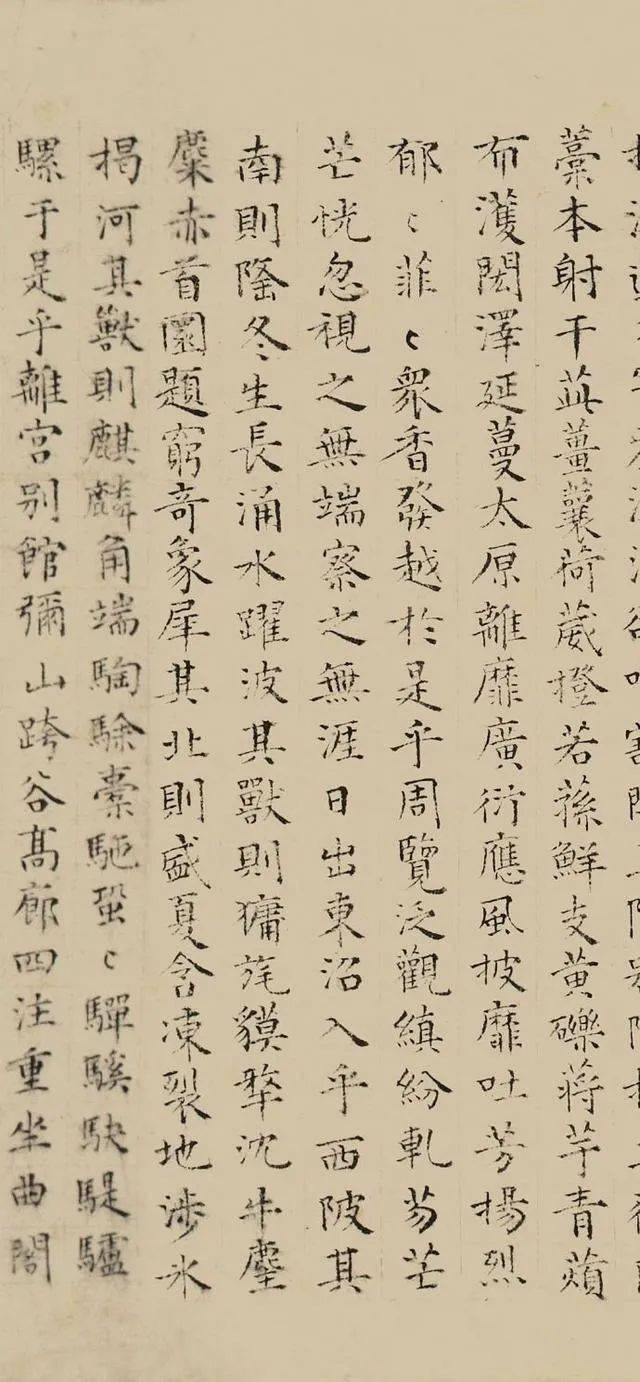 藳本射干茈薑蘘荷葴橙若蓀鮮支黄礫蔣芧青薠
布濩閎澤延蔓太原離靡廣衍應風披靡吐芳揚烈
郁〻菲〻衆香發越於是乎周覽泛觀縝紛軋芴芒
芒恍忽視之無端察之無涯日出東沼入乎西陂其
南則隆冬生長涌水躍波其獸則㺎旄貘犛沈牛麈
麋赤首圜題窮奇象犀其北則盛夏含凍裂地涉氷
揭河其獸則麒麟角端騊駼橐駞蛩〻驒騱駃騠驢
騾于是乎離宮别館彌山跨谷髙廊四注重坐曲閣